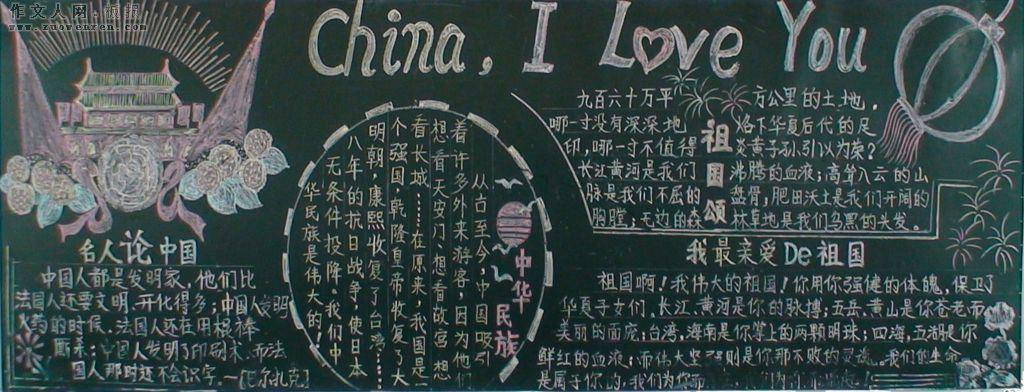 作文人网·板报
www.zuowenren.net
China, I Love You
名人论中国
中国人都是发明家，他们比
法国人还要文明、开化得多；中国人发明
火药的时候、法国人还在用棍棒
厮杀；中国人发明了印刷术、而法
国人那时还不会识字。—(巴尔扎克)
中华民族
从古至今，中国吸引
着许多外来游客，因为他们
想看天安门、想看故宫、想
看长城……在原来，我国是一
个强国，乾隆皇帝收复了大
明朝，康熙收复了台湾……
八年的抗日战争，使日本
无条件投降。我们中
华民族是伟大的！
祖国颂
九百六十万平方公里的土地，
哪一寸没有深深地烙下华夏后代的足
印，哪一寸不值得炎黄子孙引以为荣？
长江黄河是我们沸腾的血液；高耸入云的山
脉是我们不屈的盘骨；肥田沃土是我们开阔的
胸膛；无边的森林草地是我们乌黑的头发。
我最亲爱De祖国
祖国啊！我伟大的祖国！你用你强健的体魄，保卫了
华夏子女们、长江、黄河是你的脉搏；五岳、黄山是你苍老而
美丽的面庞；台湾、海南是你掌上的两颗明珠；四海、五湖是你
鲜红的血液；而伟大坚则是你那不败的灵魂。我们的生命
是属于你的，我们为你而